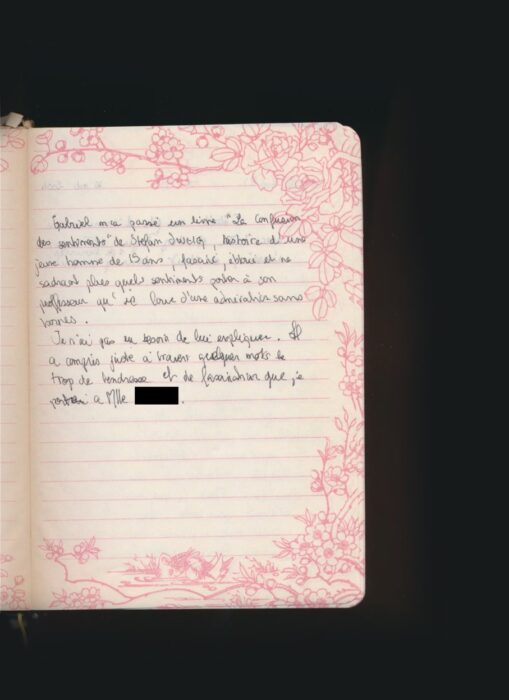 Gabriel m'a passé un livre "La Confusion
des sentiments" de Stefan Zweig, histoire d'un
jeune homme de 15 ans, fasciné, ébloui et ne
sachant plus quels sentiments porter à son
professeur qu'il loue d'une admiration sans
bornes.
Je n'ai pas eu besoin de lui expliquer. Il
a compris juste à travers quelques mots le
trop de tendresse et de fascination que je
portais a Mlle